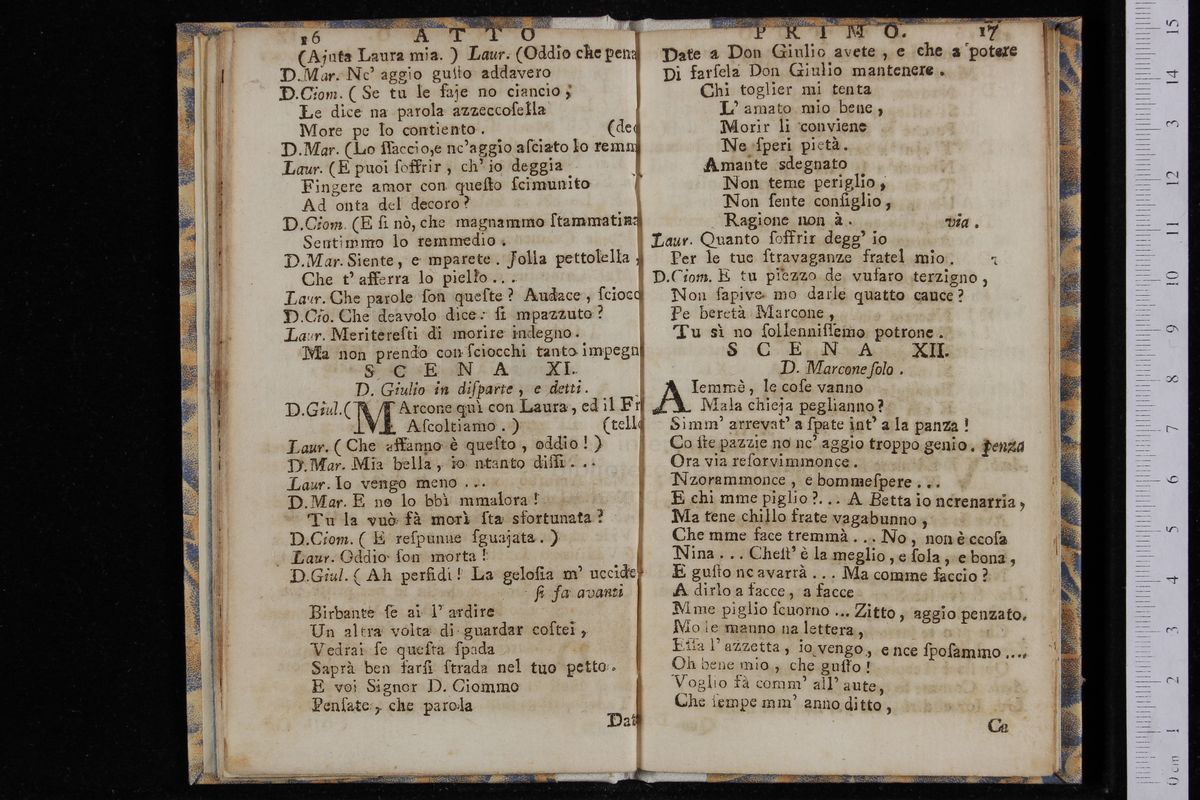 16 ATTO
(Ajuta Laura mia. ) Laur. (Oddio che pena
D.Mar. Ne' aggio guſto addavero
D.Ciom. ( Se tu le faje no ciancio,
Le dice na parola azzeccoſella
More pe lo contiento . (de
D.Mar. (Lo ſſaccio,e nc'aggio aſciato lo remm
Laur. (E puoi ſoffrir , ch' io deggia
Fingere amor con queſto ſcimunito
Ad onta del decoro?
D.Ciom. (E ſi nò, che magnammo ſtammatina
Sentimmo lo remmedio .
D.Mar. Siente, e mparete . Jolla pettolella ,
Che t' afferra lo pietto...
Laur. Che parole ſon queſte? Audace , ſciocc
D.Cio. Che deavolo dice: ſi mpazzuto?
Laur. Meritereſti di morire indegno.
Ma non prendo con ſciocchi tanto impegn
SCENA XI.
D. Giulio in diſparte , e detti.
D.Giul.( MArcone quì con Laura, ed il Fr
Aſcoltiamo . ) (tell
Laur. ( Che affanno è queſto , oddio! )
D.Mar. Mia bella, io ntanto diſſi...
Laur. Io vengo meno ...
D.Mar. E no lo bbì mmalora!
Tu la vuò fà morì ſta sfortunata?
D.Ciom. ( E reſpunne ſguajata. )
Laur. Oddio ſon morta!
D.Giul. ( Ah perfidi! La geloſia m' uccide
ſi fa avanti
Birbante ſe ai l' ardire
Un altra volta di guardar coſtei,
Vedrai ſe queſta ſpada
Saprà ben farſi ſtrada nel tuo petto.
E voi Signor D. Ciommo
Penſate, che parola
Dat
PRIMO. 17
Date a Don Giulio avete , e che a potere
Di farſela Don Giulio mantenere .
Chi toglier mi tenta
L' amato mio bene,
Morir li conviene
Ne ſperi pietà.
Amante sdegnato
Non teme periglio,
Non ſente conſiglio,
Ragione non à . via .
Laur. Quanto ſoffrir degg' io
Per le tue ſtravaganze fratel mio .
D.Ciom. E tu piezzo de vufaro terzigno,
Non ſapive mo darle quatto cauce?
Pe beretà Marcone,
Tu sì no ſollenniſſemo potrone.
SCENA XII.
D. Marcone ſolo .
AIemmè, le coſe vanno
Mala chieja peglianno?
Simm' arrevat' a ſpate int' a la panza!
Co ſte pazzie no nc' aggio troppo genio. penza
Ora via reſorvimmonce.
Nzorammonce, e bommeſpere...
E chi mme piglio?... A Betta io ncrenarria,
Ma tene chillo frate vagabunno,
Che mme face tremmà ... No, non è ccoſa
Nina ... Cheſt' è la meglio, e ſola, e bona,
E guſto nc avarrà ... Ma comme faccio?
A dirlo a facce, a facce
Mme piglio ſcuorno ... Zitto, aggio penzato.
Mo le manno na lettera,
Eſſa l' azzetta, io vengo, e nce ſpoſammo ....
Oh bene mio, che guſto!
Voglio fà comm' all' aute,
Che ſempe mm' anno ditto,
Ca